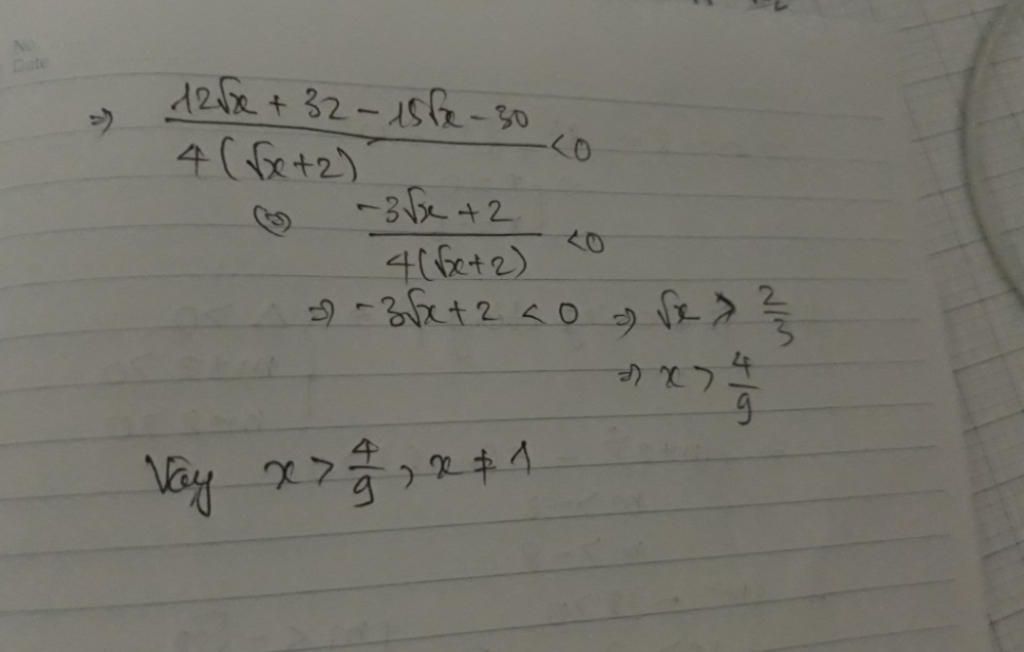 No.
Date
⇒ (12√x + 32 - 15√x - 30)/(4(√x+2)) <0
⇔ (-3√x + 2)/(4(√x+2)) <0
⇒ -3√x + 2 < 0 ⇒ √x > 2/3
⇒ x > 4/9
Vậy x > 4/9, x ≠ 1